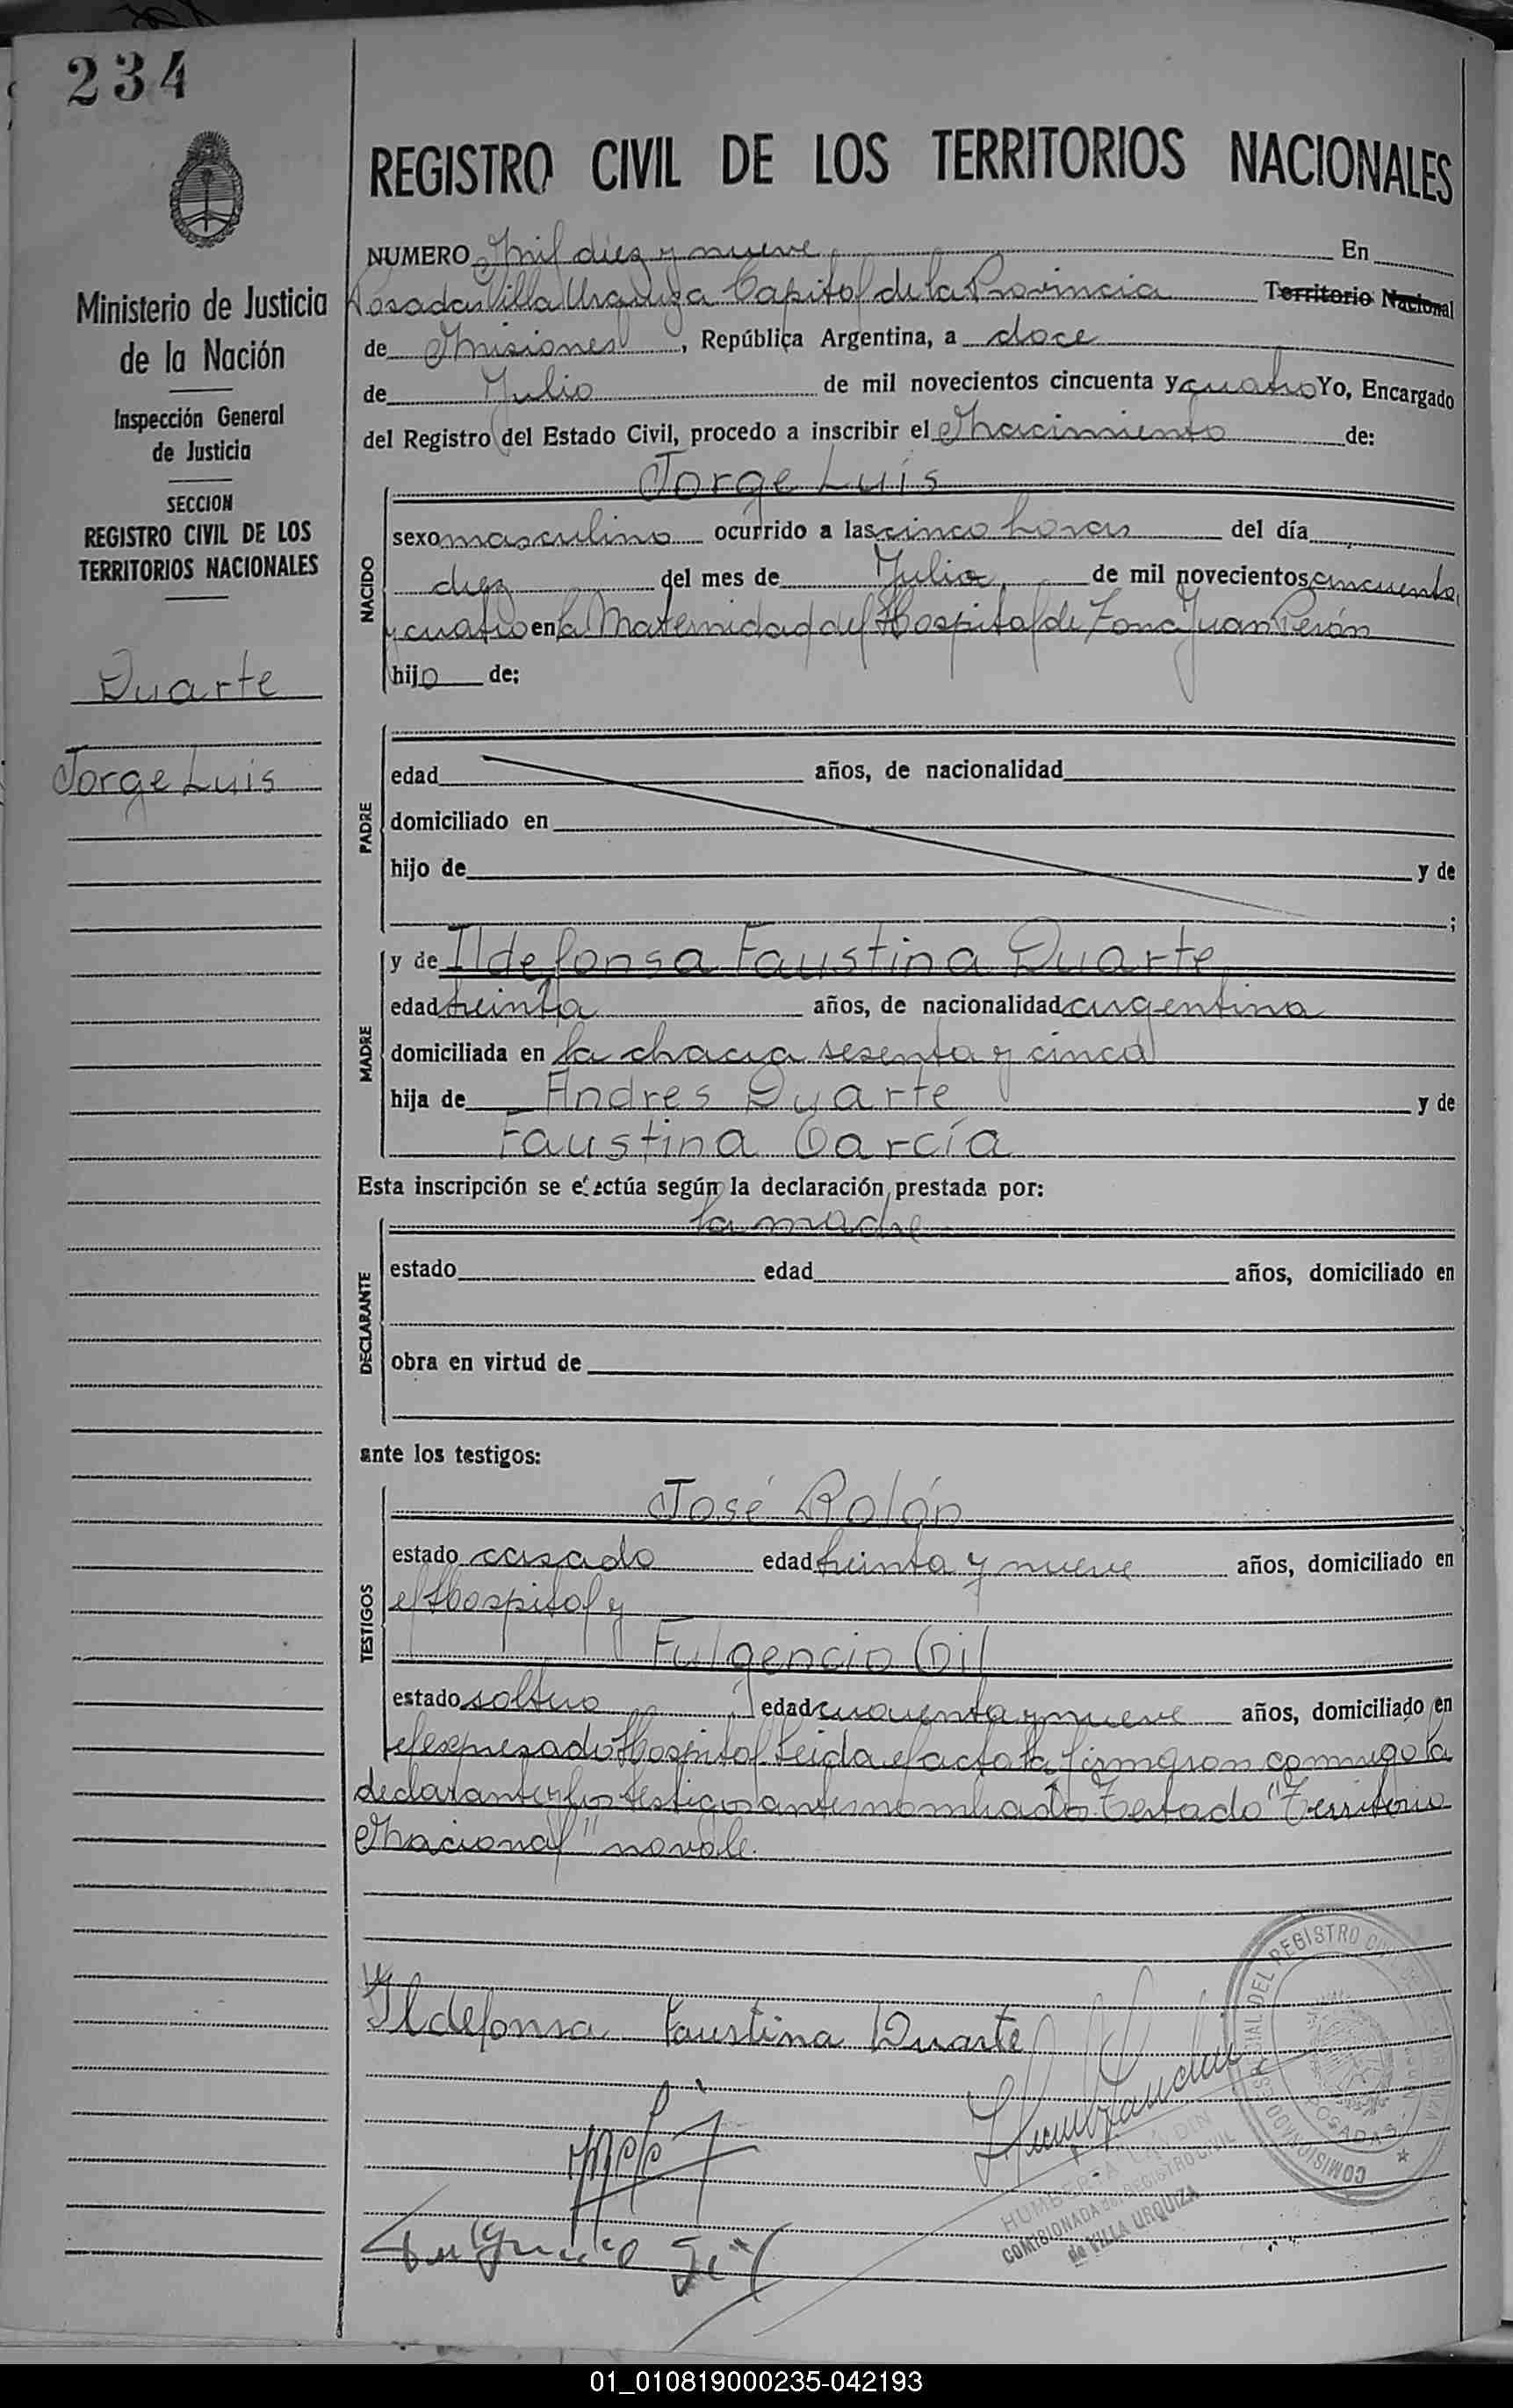 234
REGISTRO CIVIL DE LOS TERRITORIOS NACIONALES
Ministerio de Justicia
de la Nación
Inspección General
de Justicia
SECCION
REGISTRO CIVIL DE LOS
TERRITORIOS NACIONALES
Duarte
Jorge Luis
NUMERO Mil diez y nueve En
Posadas Villa Urquiza Capital de la Provincia Territorio Nacional
de Misiones, República Argentina, a doce
de Julio de mil novecientos cincuenta y cuatro Yo, Encargado
del Registro del Estado Civil, procedo a inscribir el Nacimiento de:
Jorge Luis
NACIDO
sexo masculino ocurrido a las cinco horas del día
diez del mes de Julio de mil novecientos cincuenta
y cuatro en la Maternidad del Hospital de Zona Juan Perón
hijo de:
PADRE
edad años, de nacionalidad
domiciliado en
hijo de y de
;
MADRE
y de Ildefonsa Faustina Duarte
edad treinta años, de nacionalidad argentina
domiciliada en la chacra sesenta y cinco
hija de Andres Duarte y de
Faustina García
Esta inscripción se efectúa según la declaración prestada por:
la madre
DECLARANTE
estado edad años, domiciliado en
obra en virtud de
ante los testigos:
TESTIGOS
José Rolón
estado casado edad treinta y nueve años, domiciliado en
el Hospital y
Fulgencio Gil
estado soltero edad cuarenta y nueve años, domiciliado en
el expresado Hospital Leida el acta la firmaron conmigo la
declarante y los testigos antes nombrados Testado "Territorio
Nacional" no vale.
Ildefonsa Faustina Duarte
Fulgencio Gil
HUMBERTA LANDIN
COMISIONADA del REGISTRO CIVIL
de VILLA URQUIZA
COMISIONADO ESPECIAL DEL REGISTRO CIVIL
POSADAS
01_010819000235-042193